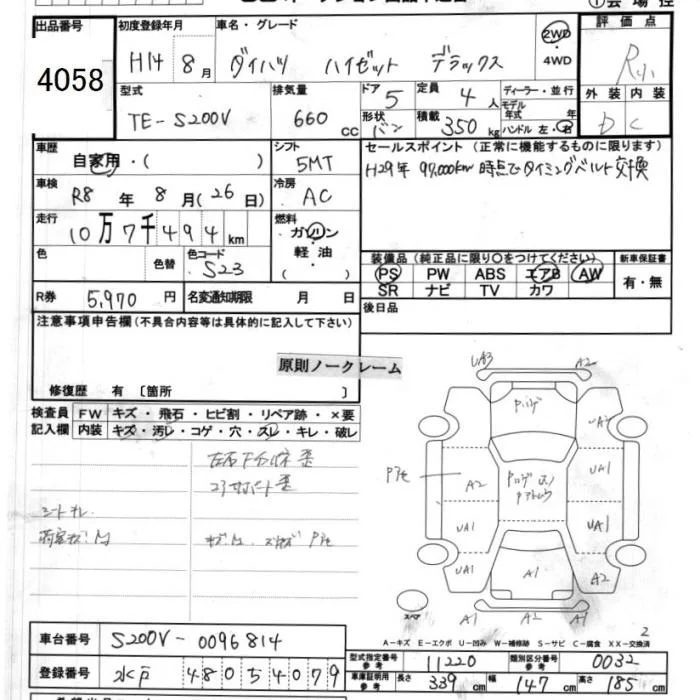 出品番号
4058
初度登録年月
H14 8月
車名・グレード
ダイハツ ハイゼット デラックス
2WD
・4WD
評価点
R
外装 内装
D C
型式
TE-S200V
排気量
660 cc
ドア 5
定員 4人
ディーラー・並行
モデル
年式 年
ハンドル 左・右
形状 バン
積載 350 kg
車歴
自家用・( )
シフト
5MT
セールスポイント(正常に機能するものに限ります)
H29年 97,000km 時点でタイミングベルト交換
車検
R8年 8月(26日)
冷房
AC
走行
10万7千494km
燃料
・ガソリン
・軽油
・( )
色
色替
色コード
S23
装備品(純正品に限り○をつけてください)
PS PW ABS エアB AW
SR ナビ TV カワ
新車保証書
有・無
R券 5,970円
名変通知期限 月 日
後日品
注意事項申告欄(不具合内容等は具体的に記入して下さい)
原則ノークレーム
修復歴 有〔箇所 〕
検査員 FW キズ・飛石・ヒビ割・リペア跡・×要
記入欄 内装 キズ・汚レ・コゲ・穴・スレ・キレ・破レ
コアサポート歪
UA3 A2
UA1
A2
UA1 UA1
UA1 A1 A2
A2 A2 A1
スペア
A-キズ E-エクボ U-凹み W-補修跡 S-サビ C-腐食 XX-交換済
車台番号 S200V-0096814
登録番号 水戸 480 5 4079
型式指定番号 参考 11220
類別区分番号 参考 0032
車庫証明用 参考 長さ 339cm 幅 147cm 高さ 185cm